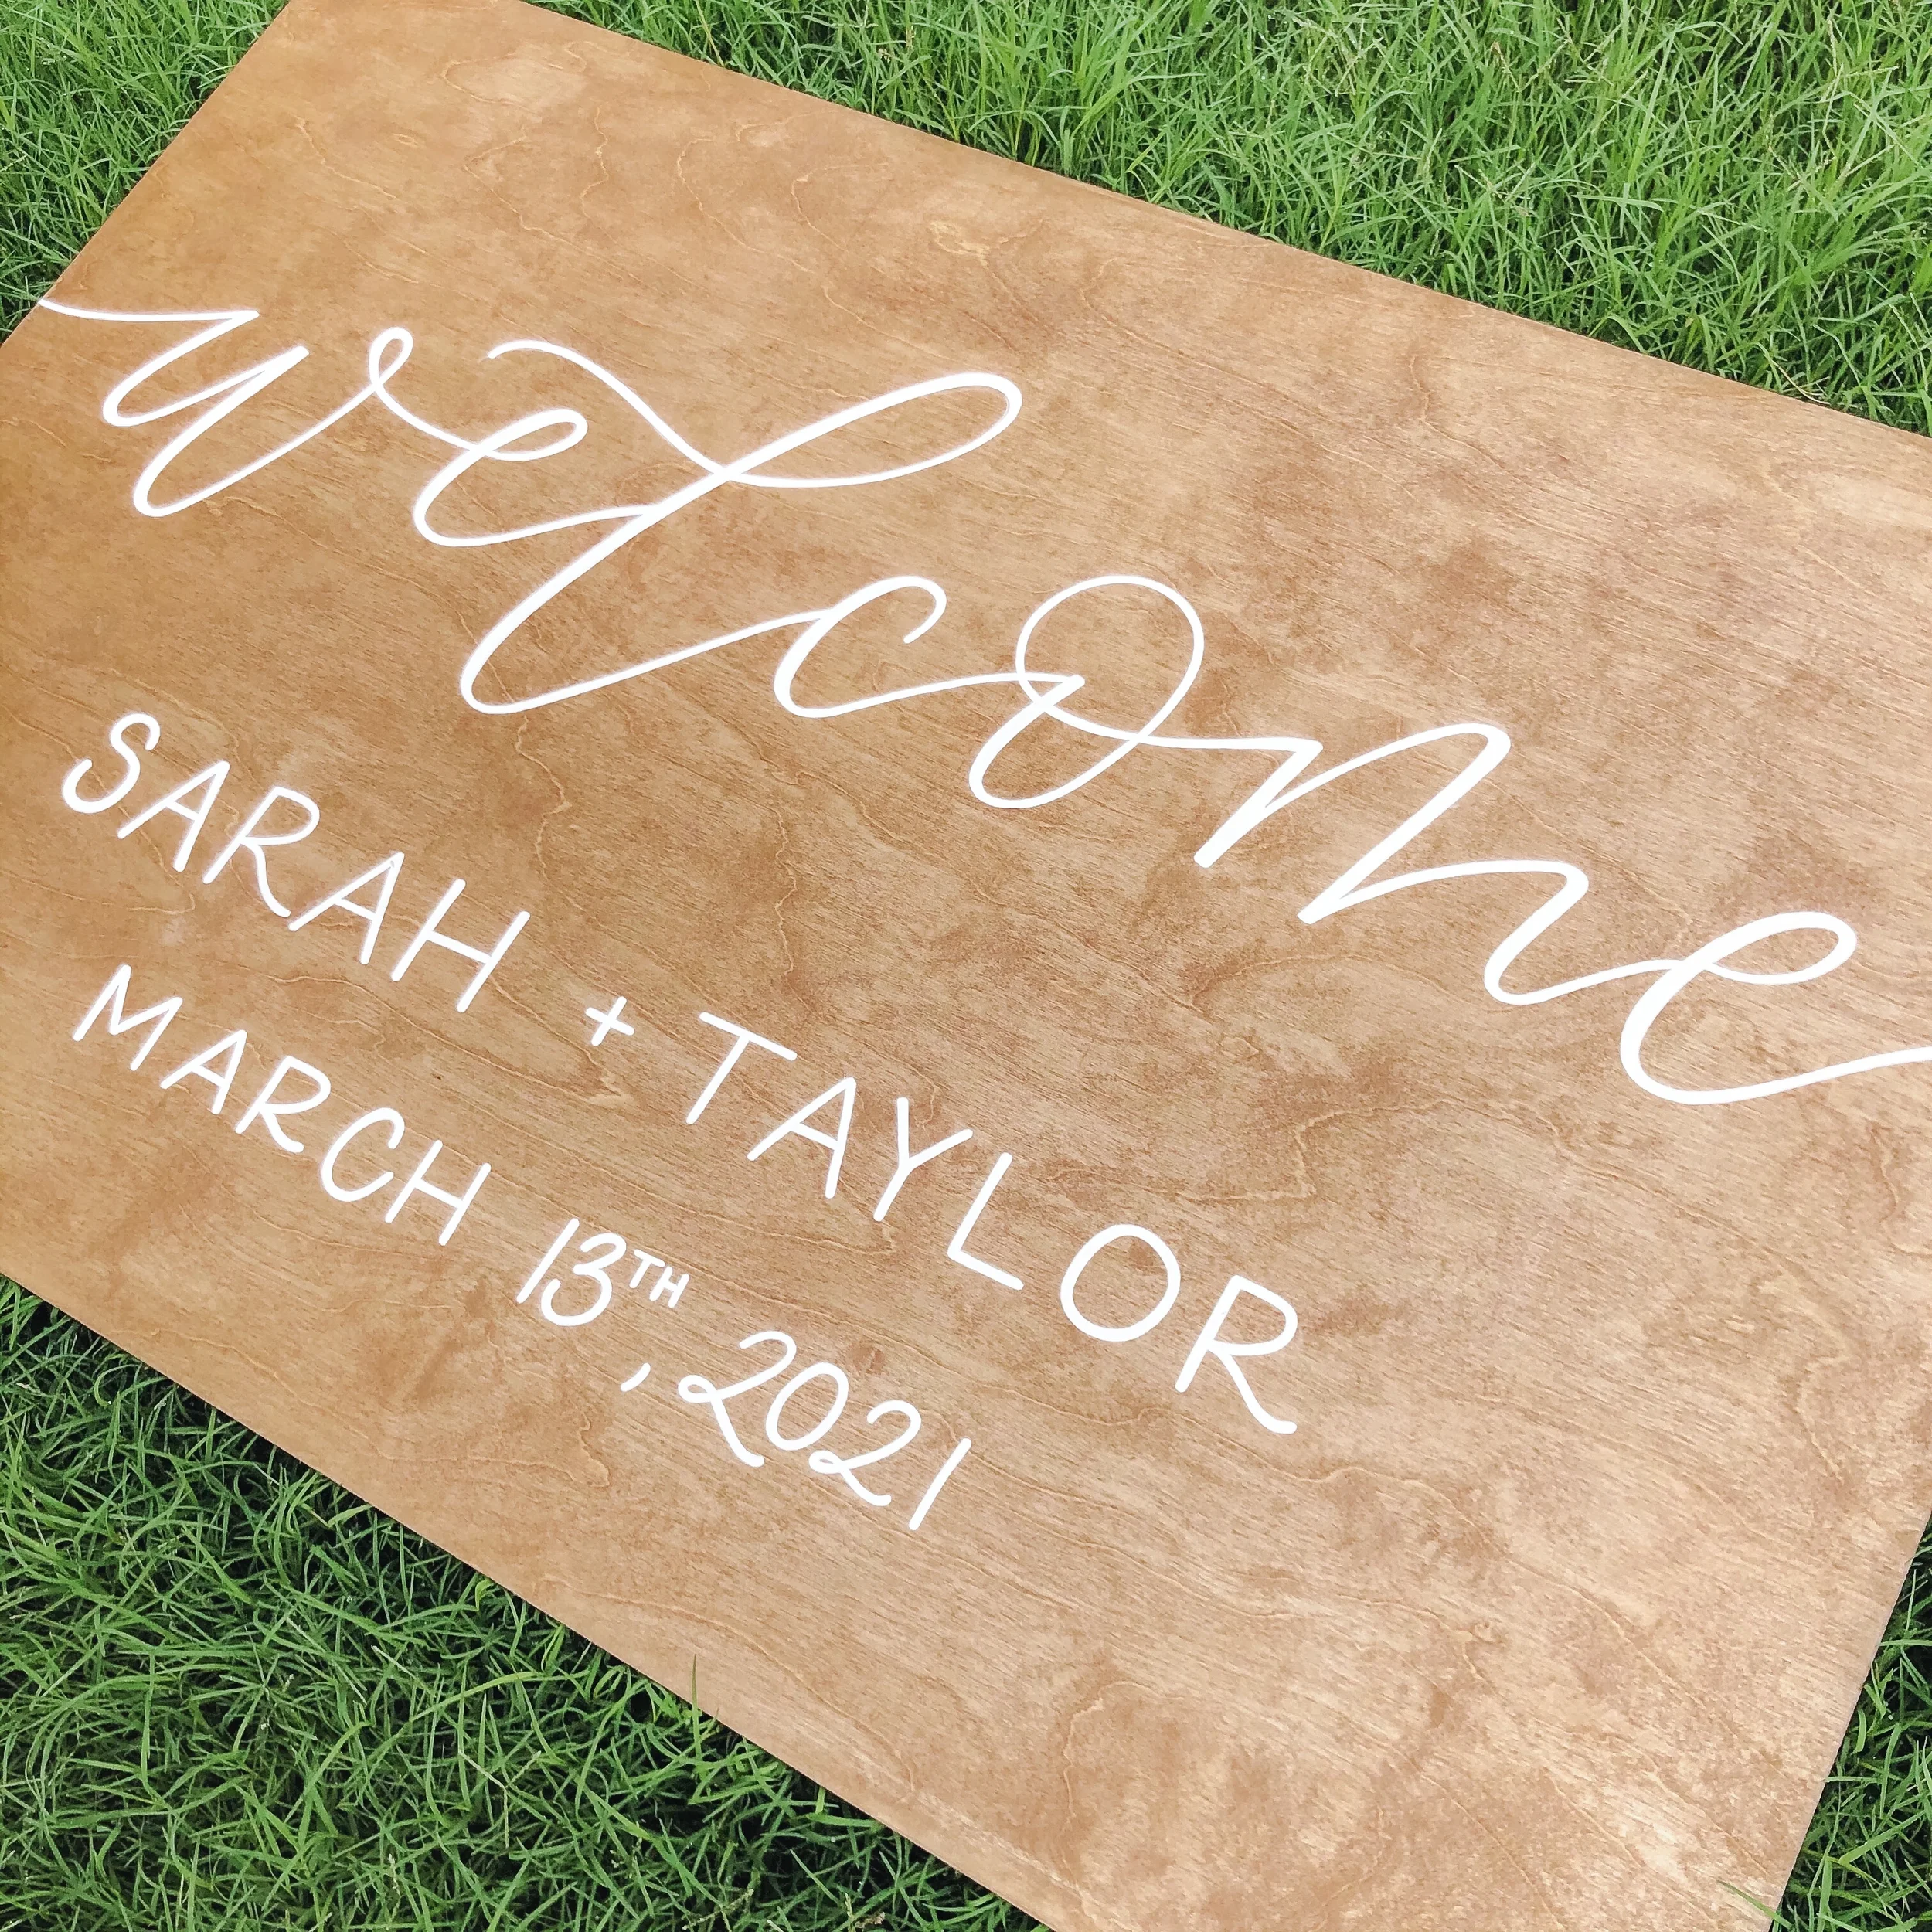 welcome
SARAH + TAYLOR
MARCH 13TH, 2021